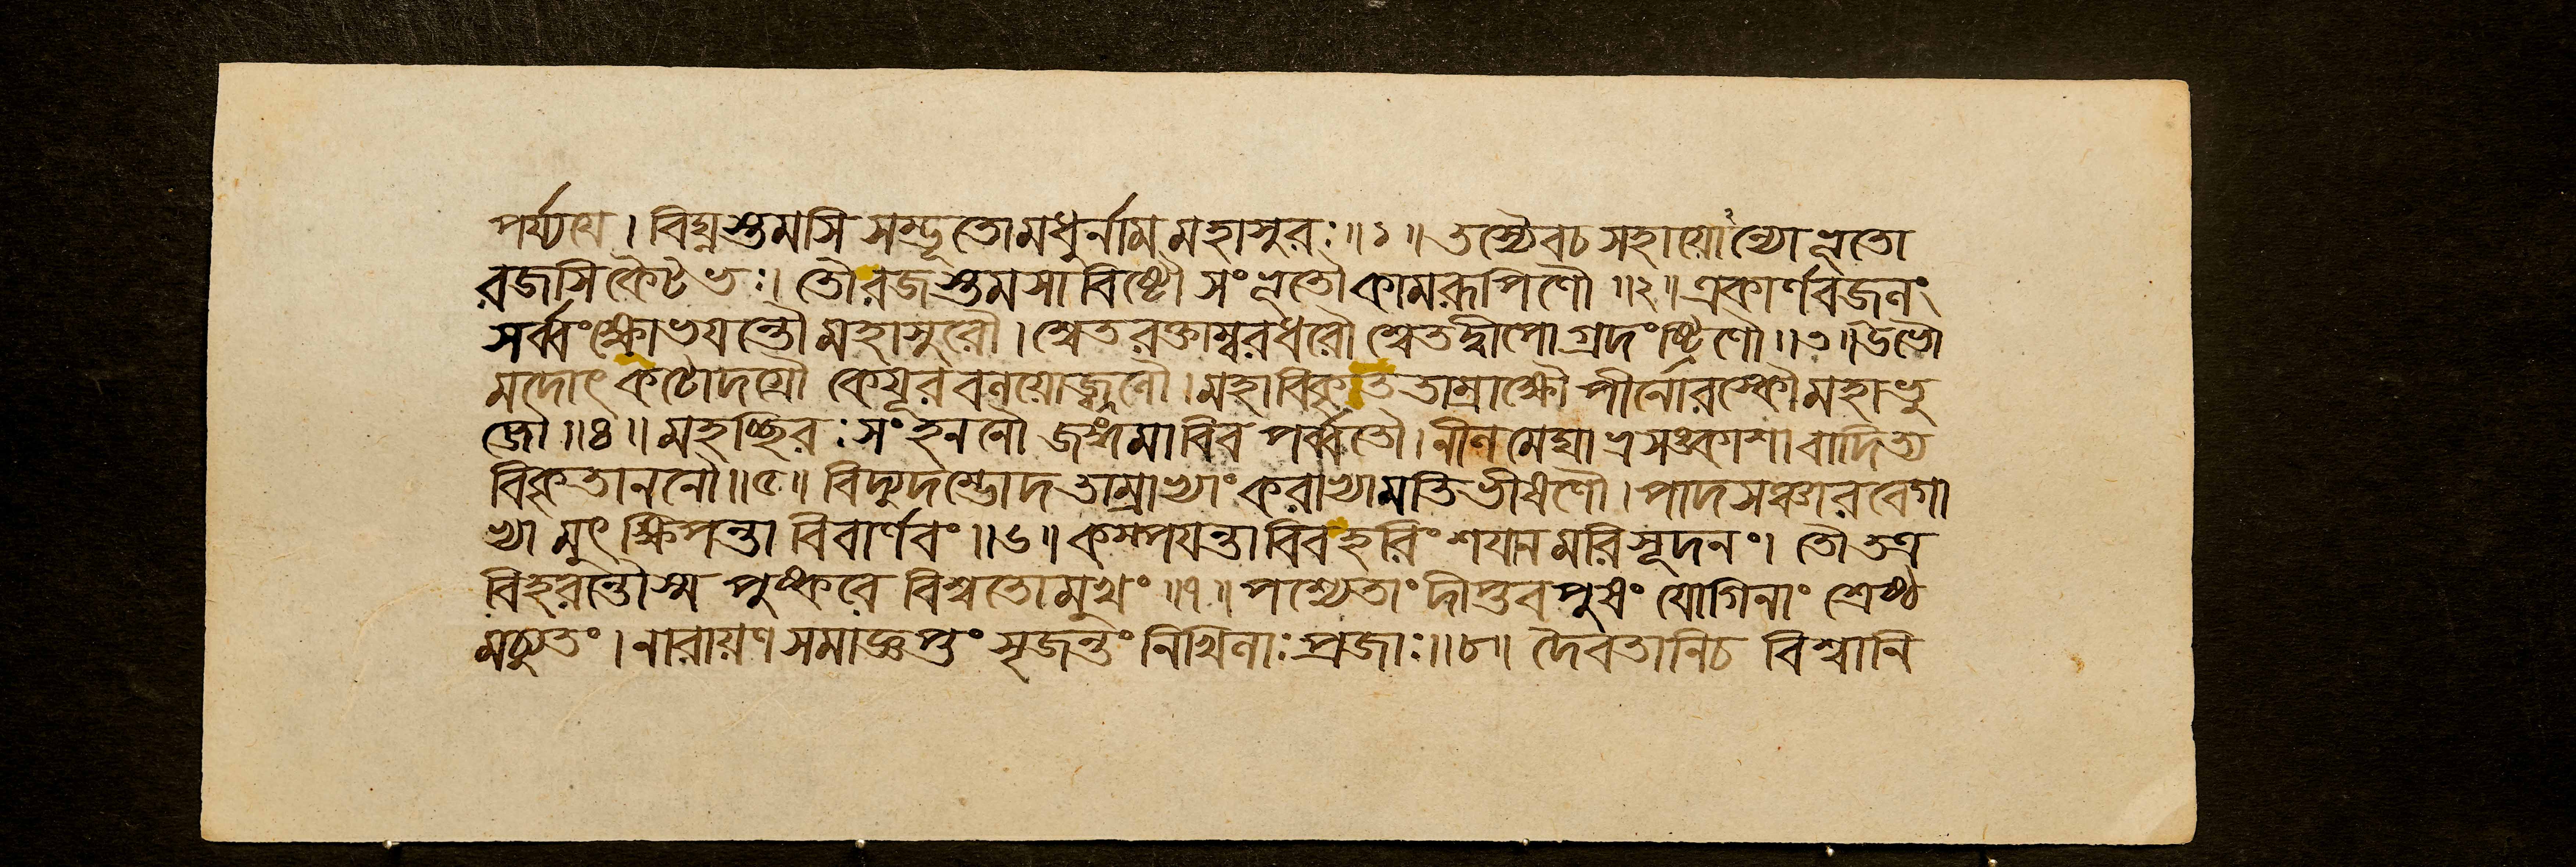 পর্য্যয়ে । বিঘ্নস্তমসি সম্ভূতোমধুর্নামমহাসুরঃ ॥ ১ ॥ তস্যৈবচ সহায়োন্যোভূতো
রজসি কৈটভঃ । তৌরজস্তমসাবিষ্টৌ সংভূতৌ কামরূপিণৌ ॥ ২ ॥ একার্ণবজলং
সর্ব্বং ক্ষোভযন্তৌ মহাসুরৌ । শ্বেতরক্তাম্বরধরৌ শ্বেতদ্বীপোগ্রদংষ্ট্রিণৌ ॥ ৩ ॥ উভৌ
মদোৎকটোদগ্রৌ কেযূরবলয়োজ্জ্বলৌ । মহাবিকৃততাম্রাক্ষৌ পীনোরস্কৌ মহাভু
জৌ ॥ ৪ ॥ মহচ্ছিরঃসংহননৌ জঙ্গমাবিব পর্ব্বতৌ । নীলমেঘাভ্রসঙ্কাশাবাদিত্য
বিকৃতাননৌ ॥ ৫ ॥ বিদ্যুদম্ভোদতাম্রাভ্যাং করাভ্যামতিভীষণৌ । পাদসঞ্চারবেগা
ভ্যামুৎক্ষিপন্তাবিবার্ণবং ॥ ৬ ॥ কম্পযন্তাবিবহরিং শযানমরিসূদনং । তৌ তত্র
বিহরন্তৌস্ম পুষ্করে বিশ্বতোমুখং ॥ ৭ ॥ পশ্যেতাং দীপ্তবপুষং যোগিনাং শ্রেষ্ঠ
মচ্যুতং । নারায়ণ সমাজ্ঞপ্তং সৃজন্তং নিখিলাঃ প্রজাঃ ॥ ৮ ॥ দৈবতানিচ বিশ্বানি